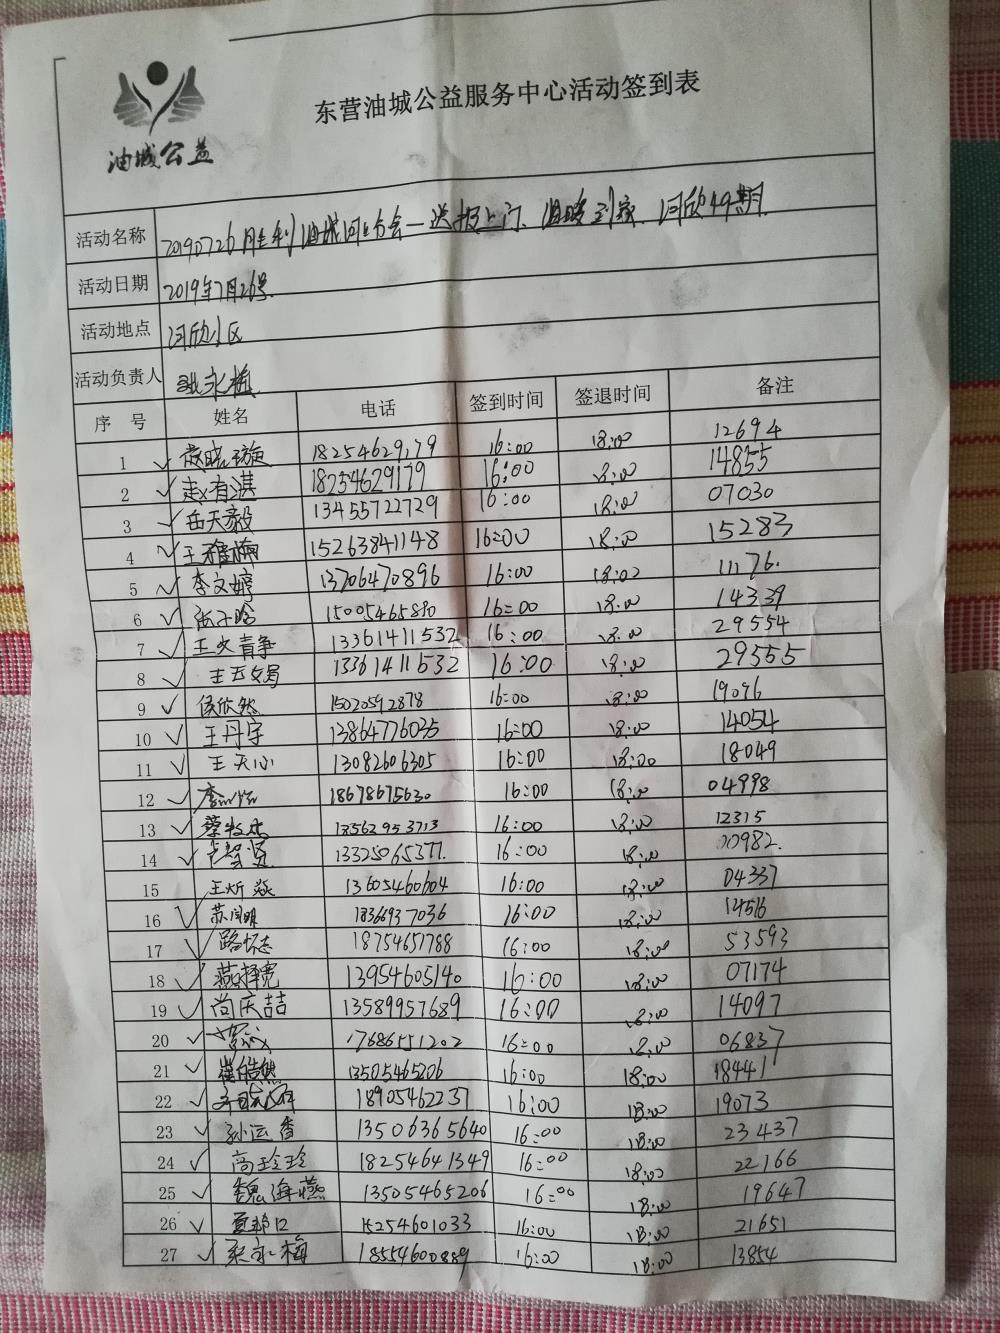 油城公益
东营油城公益服务中心活动签到表
活动名称 20190726胜利油城河口分会—送报上门、温暖到家、河欣49期
活动日期 2019年7月26号
活动地点 河欣小区
活动负责人 永梅
序 号 姓名 电话 签到时间 签退时间 备注
1 晓璇 18254629179 16:00 18:00 12694
2 赵有淇 18254629179 16:00 18:00 14855
3 岳天毅 13455722729 16:00 18:00 07030
4 王雅楠 15263841148 16:00 18:00 15283
5 李文婷 13706470896 16:00 18:00 11176.
6 16:00 18:00 14339
7 王文青争 13361411532 16:00 18:00 29554
8 王 13361411532 16:00 18:00 29555
9 侯欣然 15020592878 16:00 18:00 19096
10 王丹宇 13864776035 16:00 18:00 14054
11 王天心 13082606305 16:00 18:00 18049
12 18678675630 16:00 18:00 04998
13 13562953713 16:00 18:00 12315
14 智贤 13325065377. 16:00 18:00 00982.
15 王炘焱 13605460604 16:00 18:00 04337
16 苏 18366937036 16:00 18:00 14516
17 路怀志 18754651788 16:00 18:00 53593
18 燕择宽 13954605140 16:00 18:00 07174
19 尚庆喆 13589957689 16:00 18:00 14097
20 17686551202 16:00 18:00 06837
21 崔皓然 13505465206 16:00 18:00 18441
22 18905462237 16:00 18:00 19073
23 孙运香 13506365640 16:00 18:00 23437
24 高玲玲 18254641349 16:00 18:00 22166
25 魏海燕 13505465206 16:00 18:00 19647
26 15254601033 16:00 18:00 21651
27 永梅 18554600889 16:00 18:00 13854